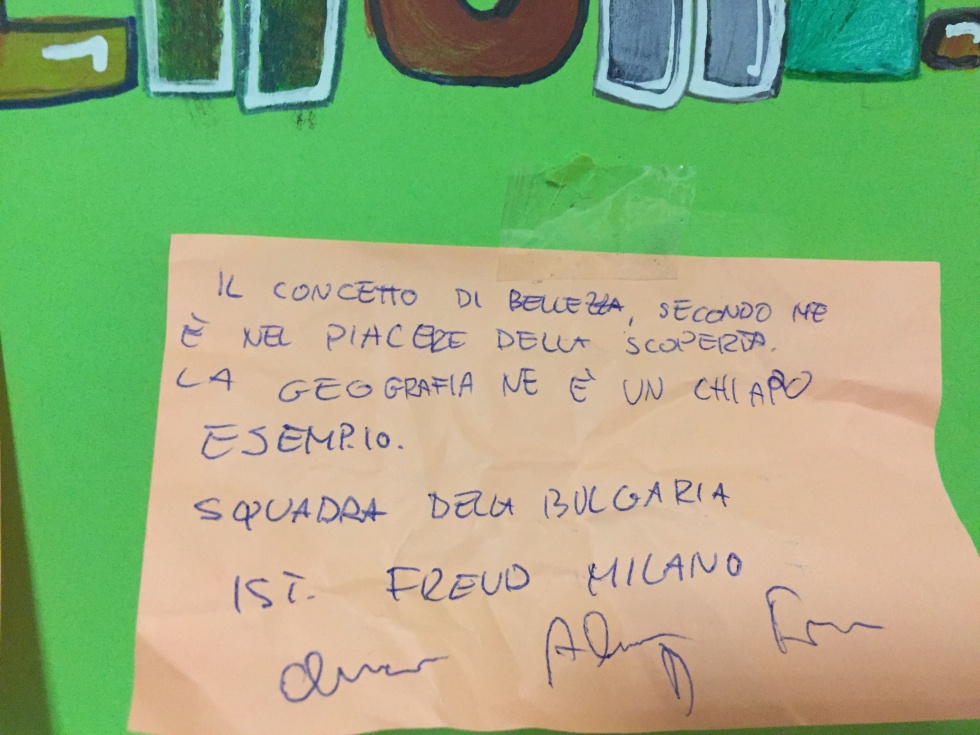 IL CONCETTO DI BELLEZZA, SECONDO ME
È NEL PIACERE DELLA SCOPERTA.
LA GEOGRAFIA NE È UN CHIARO
ESEMPIO.
SQUADRA DELLA BULGARIA
IST. FREUD MILANO